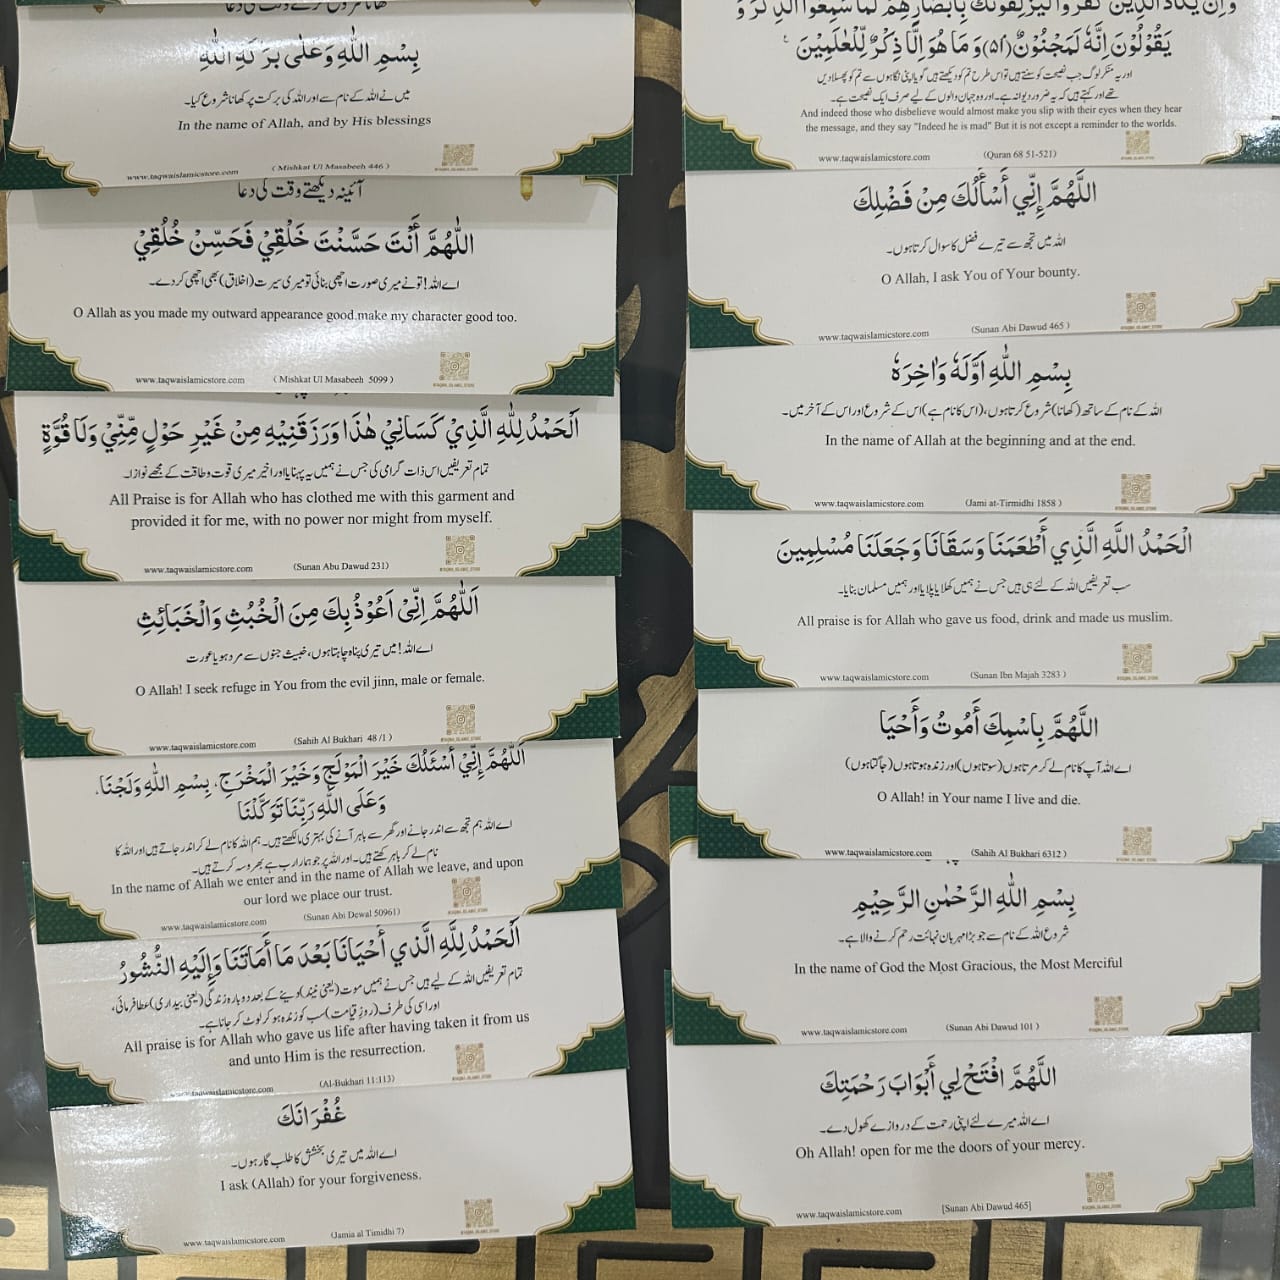 کھانا شروع کرتے وقت کی دعا
بِسْمِ اللّٰهِ وَعَلٰى بَرَكَةِ اللّٰهِ
میں نے اللہ کے نام سے اور اللہ کی برکت پر کھانا شروع کیا۔
In the name of Allah, and by His blessings
www.taqwaislamicstore.com
( Mishkat Ul Masabeeh 446 )
آئینہ دیکھتے وقت کی دعا
اللّٰهُمَّ أَنْتَ حَسَّنْتَ خَلْقِيْ فَحَسِّنْ خُلُقِيْ
اے اللہ! تو نے میری صورت اچھی بنائی تو میری سیرت (اخلاق) بھی اچھی کر دے۔
O Allah as you made my outward appearance good.make my character good too.
www.taqwaislamicstore.com
( Mishkat Ul Masabeeh 5099 )
اَلْحَمْدُ لِلّٰهِ الَّذِيْ كَسَانِيْ هٰذَا وَرَزَقَنِيْهِ مِنْ غَيْرِ حَوْلٍ مِّنِّيْ وَلَا قُوَّةٍ
تمام تعریفیں اس ذات گرامی کی جس نے ہمیں یہ پہنایا اور اخیر میری قوت و طاقت کے مجھے نوازا۔
All Praise is for Allah who has clothed me with this garment and
provided it for me, with no power nor might from myself.
www.taqwaislamicstore.com
(Sunan Abu Dawud 231)
اَللّٰهُمَّ اِنِّىْ اَعُوْذُ بِكَ مِنَ الْخُبُثِ وَالْخَبَائِثِ
اے اللہ! میں تیری پناہ چاہتا ہوں، خبیث جنوں سے مرد ہو یا عورت
O Allah! I seek refuge in You from the evil jinn, male or female.
www.taqwaislamicstore.com
(Sahih Al Bukhari 48 /1 )
اَللّٰهُمَّ إِنِّيْ أَسْئَلُكَ خَيْرَ الْمَوْلَجِ وَخَيْرَ الْمَخْرَجِ، بِسْمِ اللّٰهِ وَلَجْنَا،
وَعَلَى اللّٰهِ رَبِّنَا تَوَكَّلْنَا
اے اللہ ہم تجھ سے اندر جانے اور گھر سے باہر آنے کی بہتری مانگتے ہیں۔ ہم اللہ کا نام لے کر اندر جاتے ہیں اور اللہ کا
نام لے کر باہر نکلتے ہیں۔ اور اللہ پر جو ہمارا رب ہے بھروسہ کرتے ہیں۔
In the name of Allah we enter and in the name of Allah we leave, and upon
our lord we place our trust.
www.taqwaislamicstore.com
(Sunan Abi Dewal 50961)
اَلْحَمْدُ لِلّٰهِ الَّذي أَحْيَانَا بَعْدَ مَا أَمَاتَنَا وَإِلَيْهِ النُّشُورُ
تمام تعریفیں اللہ کے لیے ہیں جس نے ہمیں موت (یعنی نیند) دینے کے بعد دوبارہ زندگی (یعنی بیداری) عطا فرمائی،
اور اسی کی طرف (روزِ قیامت) سب کو زندہ ہو کر لوٹ کر جانا ہے۔
All praise is for Allah who gave us life after having taken it from us
and unto Him is the resurrection.
www.taqwaislamicstore.com
(Al-Bukhari 11:113)
غُفْرَانَكَ
اے اللہ میں تیری بخشش کا طلب گار ہوں۔
I ask (Allah) for your forgiveness.
www.taqwaislamicstore.com
(Jamia al Timidhi 7)
وَاِنْ يَّكَادُ الَّذِيْنَ كَفَرُوْا لَيُزْلِقُوْنَكَ بِاَبْصَارِهِمْ لَمَّا سَمِعُوا الذِّكْرَ وَ
يَقُوْلُوْنَ اِنَّهٗ لَمَجْنُوْنٌ (۵۱) وَ مَا هُوَ اِلَّا ذِكْرٌ لِّلْعٰلَمِيْنَ
اور یہ منکر لوگ جب نصیحت کو سنتے ہیں تو اس طرح تم کو دیکھتے ہیں گویا اپنی نگاہوں سے تم کو پھسلا دیں
گے اور کہتے ہیں کہ یہ ضرور دیوانہ ہے۔ اور وہ جہان والوں کے لیے صرف ایک نصیحت ہے۔
And indeed those who disbelieve would almost make you slip with their eyes when they hear
the message, and they say "Indeed he is mad" But it is not except a reminder to the worlds.
www.taqwaislamicstore.com
(Quran 68 51-521)
اللَّهُمَّ إِنِّي أَسْأَلُكَ مِنْ فَضْلِكَ
اللہ میں تجھ سے تیرے فضل کا سوال کرتا ہوں۔
O Allah, I ask You of Your bounty.
www.taqwaislamicstore.com
(Sunan Abi Dawud 465 )
بِسْمِ اللّٰهِ اَوَّلَهٗ وَاٰخِرَهٗ
اللہ کے نام کے ساتھ (کھانا) شروع کرتا ہوں، (اس کا نام ہے) اس کے شروع اور اس کے آخر میں۔
In the name of Allah at the beginning and at the end.
www.taqwaislamicstore.com
(Jami at-Tirmidhi 1858 )
الْحَمْدُ اللَّهِ الَّذِي أَطْعَمَنَا وَسَقَانَا وَجَعَلَنَا مُسْلِمِينَ
سب تعریفیں اللہ کے لئے ہی ہیں جس نے ہمیں کھلایا پلایا اور ہمیں مسلمان بنایا۔
All praise is for Allah who gave us food, drink and made us muslim.
www.taqwaislamicstore.com
(Sunan Ibn Majah 3283 )
اللَّهُمَّ بِاسْمِكَ أَمُوتُ وَأَحْيَا
اے اللہ آپ کا نام لے کر مرتا ہوں (سوتا ہوں) اور زندہ ہوتا ہوں (جاگتا ہوں)
O Allah! in Your name I live and die.
www.taqwaislamicstore.com
(Sahih Al Bukhari 6312 )
بِسْمِ اللّٰهِ الرَّحْمٰنِ الرَّحِيْمِ
شروع اللہ کے نام سے جو بڑا مہربان نہائت رحم کرنے والا ہے۔
In the name of God the Most Gracious, the Most Merciful
www.taqwaislamicstore.com
(Sunan Abi Dawud 101 )
اللَّهُمَّ افْتَحْ لِي أَبْوَابَ رَحْمَتِكَ
اے اللہ میرے لئے اپنی رحمت کے دروازے کھول دے۔
Oh Allah! open for me the doors of your mercy.
www.taqwaislamicstore.com
[Sunan Abi Dawud 465]